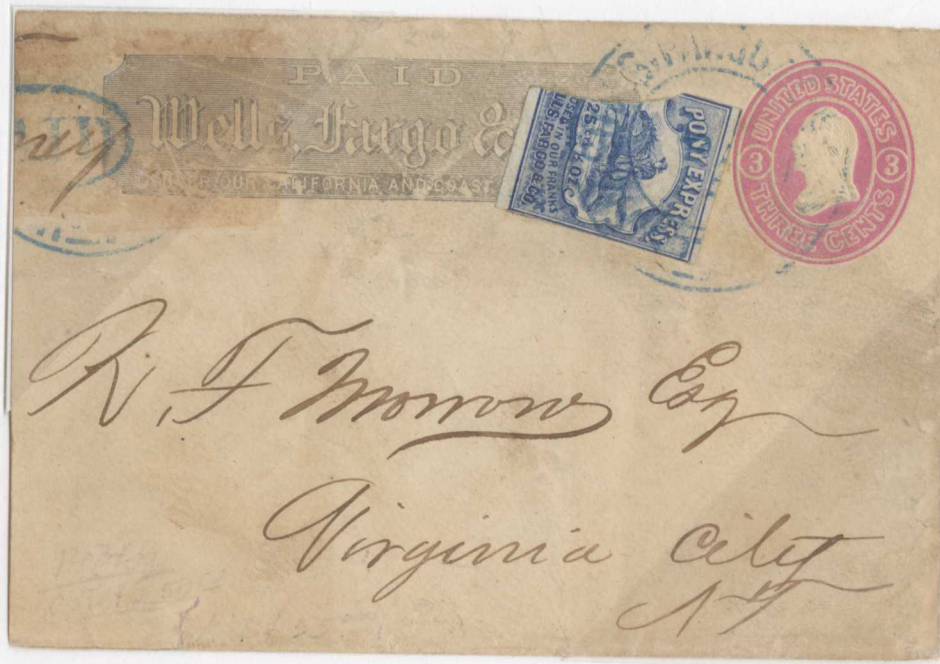 PAID
Wells, Fargo &
OVER OUR CALIFORNIA AND COAST
PONY EXPRESS
25
OZ
USED IN OUR FRANKS
WELLS, FARGO & CO.
UNITED STATES
3 3
THREE CENTS
R. F. Morrow Esq
Virginia City
N T